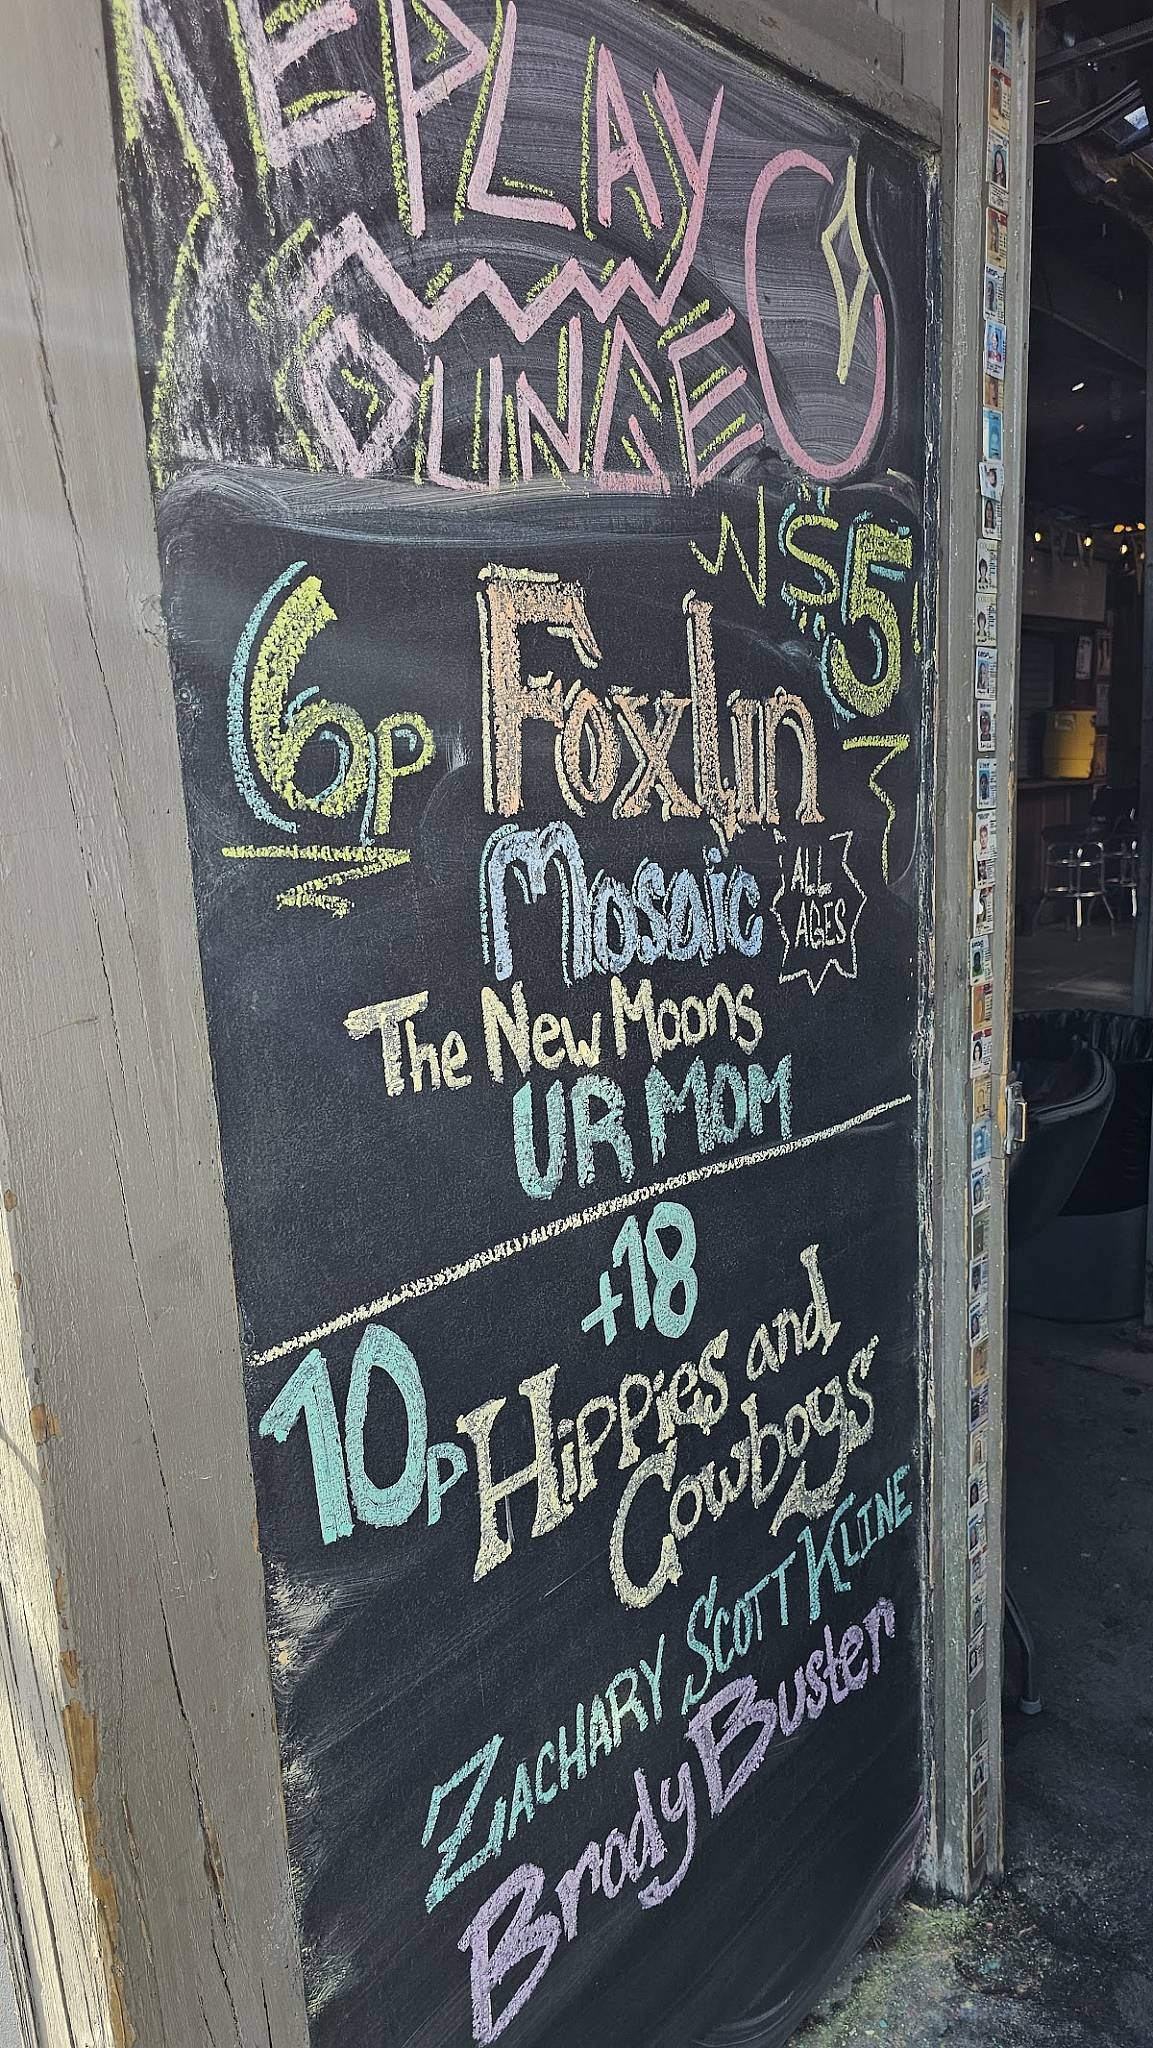 REPLAY
LOUNGE
$5
6P
Foxlin
Mosaic
ALL
AGES
The New Moons
UR MOM
+18
10P
Hippies and
Cowboys
ZACHARY SCOTT KLINE
Brody Buster